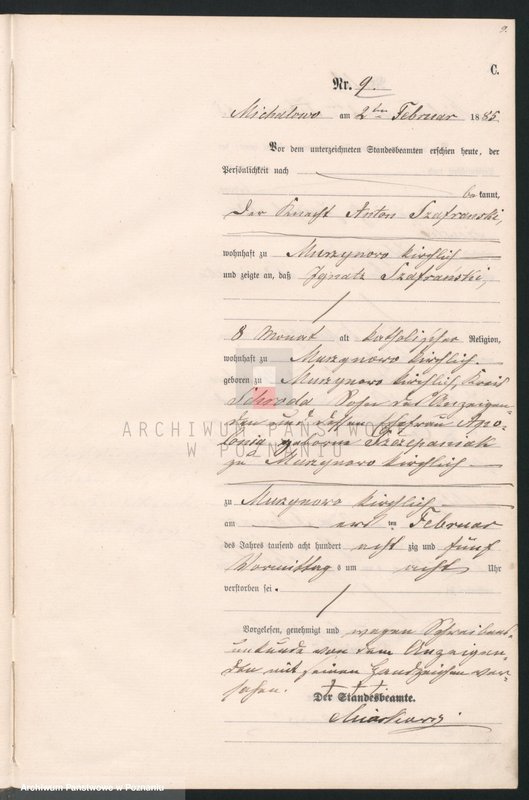 9.
C.
Nr. 9.
Michalowo am 2ten Februar 1885
Vor dem unterzeichneten Standesbeamten erschien heute, der
Persönlichkeit nach
bekannt,
der Knecht Anton Szafranski,
wohnhaft zu Murzynowo kirchlich
und zeigte an, daß Ignatz Szafranski,
8 Monat alt katholischer Religion,
wohnhaft zu Murzynowo kirchlich
geboren zu Murzynowo kirchlich, Kreis
Schroda Sohn des Anzeigen-
den und dessen Ehefrau Apo-
lonia geborne Szczepaniak
zu Murzynowo kirchlich
zu Murzynowo kirchlich
am ersten Februar
des Jahres tausend acht hundert achtzig und fünf
Vormittags um acht Uhr
verstorben sei.
Vorgelesen, genehmigt und wegen Schreibens-
unkunde von dem Anzeigen-
den mit seinen Handzeichen ver-
sehen.
+ + +
Der Standesbeamte.
ARCHIWUM PAŃSTWOWE
W POZNANIU
Archiwum Państwowe w Poznaniu